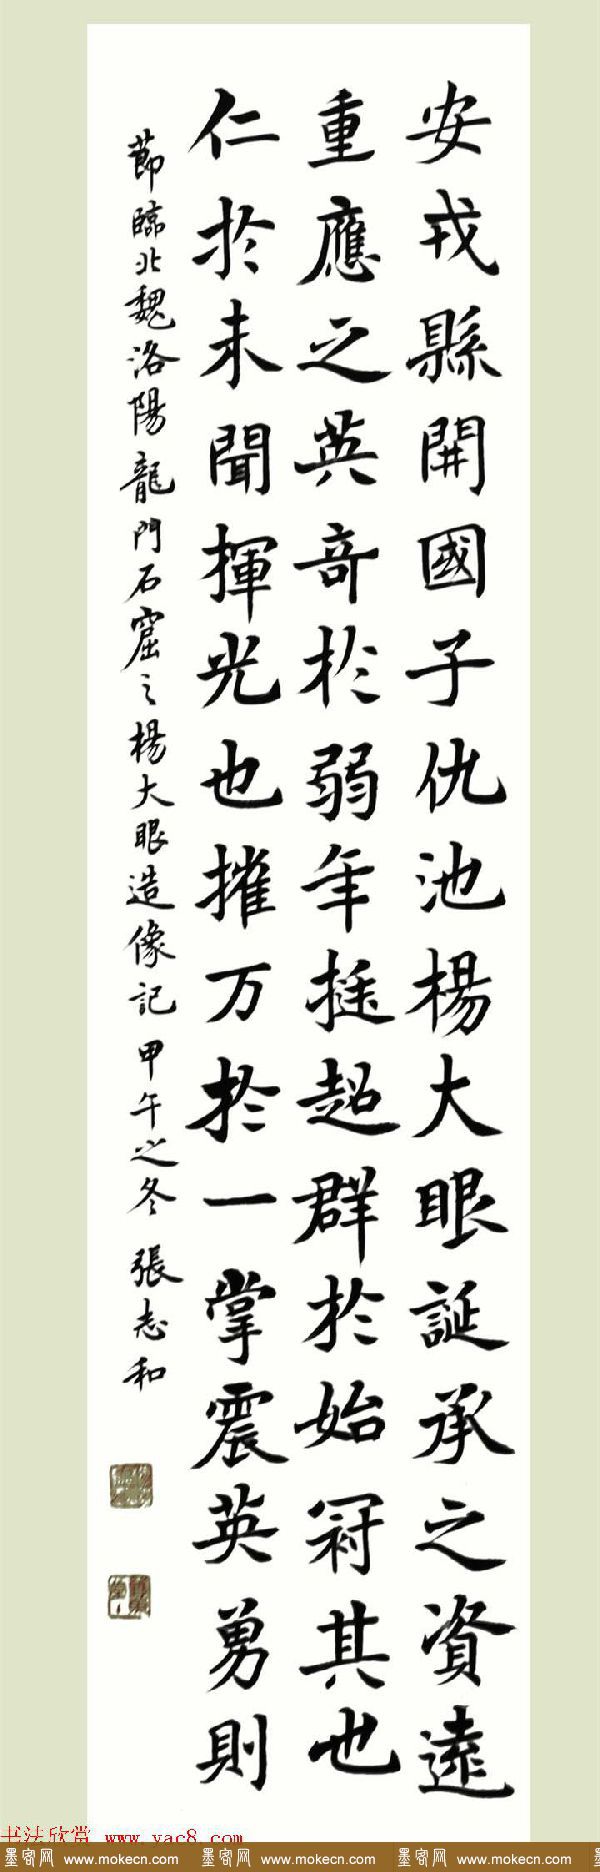 安戎縣開國子仇池楊大眼誕承之資遠
重應之英奇於弱年挺超群於始冠其也
仁於未聞揮光也摧万於一掌震英勇則
節臨北魏洛陽龍門石窟之楊大眼造像記 甲午之冬 張志和
书法欣赏 www.yac8.com
墨客网 www.mokecn.com 墨客网 www.mokecn.com 墨客网 www.mokecn.com